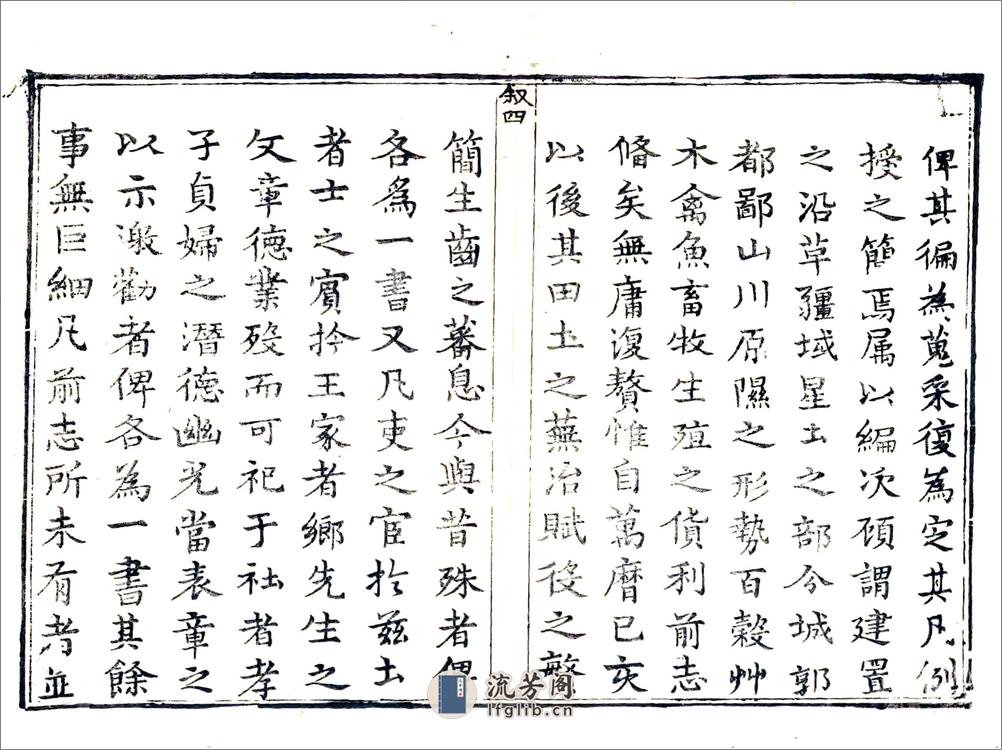 俾其徧為蒐采復為定其凡例
授之簡焉属以編次頋謂建置
之沿草疆域星土之部分城郭
都鄙山川原隰之形勢百穀艸
木禽魚畜牧生殖之貨利前志
俻矣無庸復贅惟自萬曆已亥
以後其田土之蕪治賦役之繁
叙四
簡生齒之蕃息今與昔殊者俾
各為一書又凡吏之宦扵兹土
者士之賓扵王家者鄉先生之
文章德業殁而可祀于社者孝
子貞婦之潛德幽光當表章之
以示激勸者俾各為一書其餘
事無巨細凡前志所未有者並
流芳阁
lfglib.cn